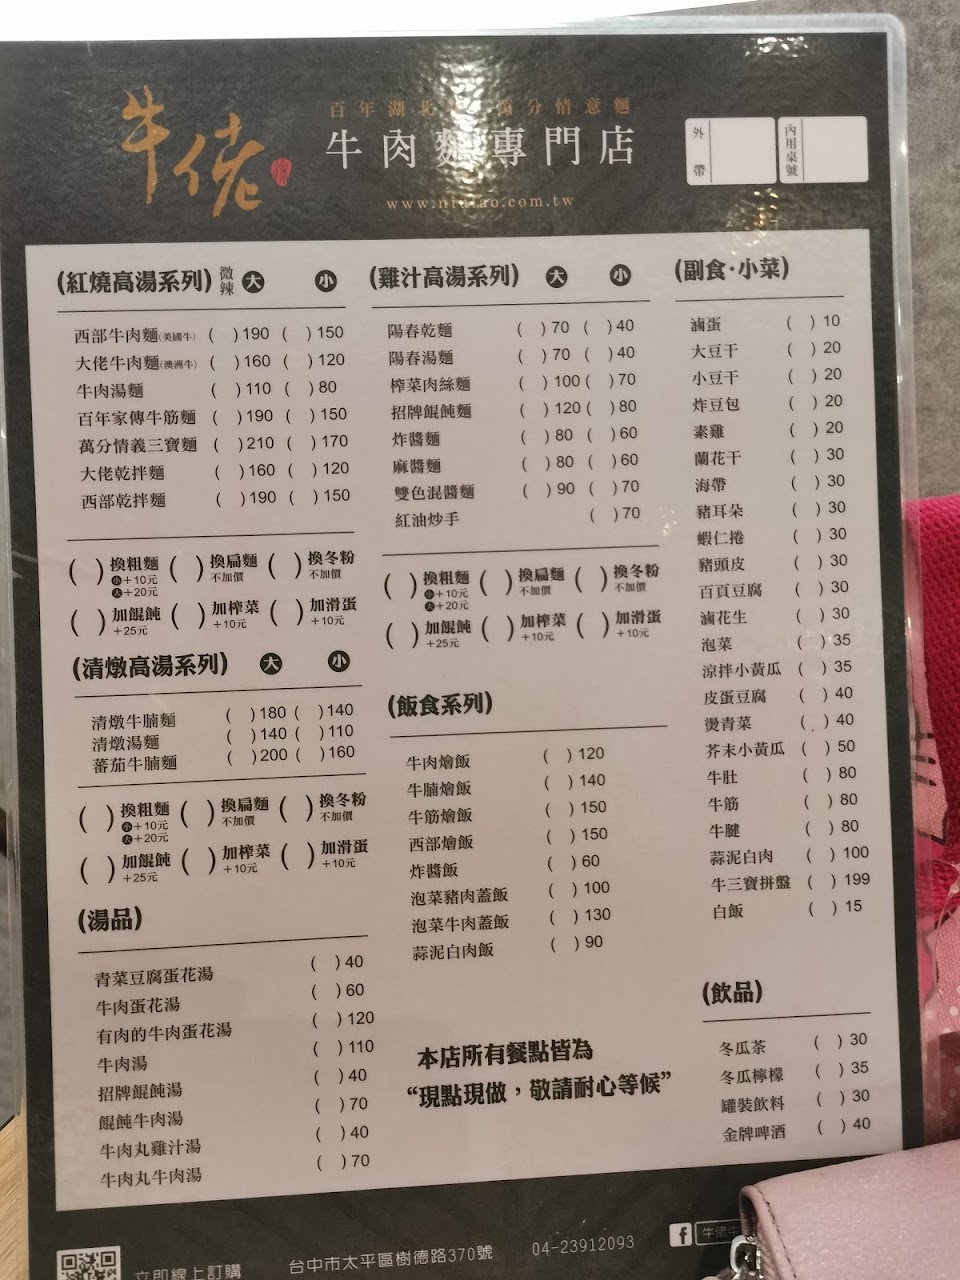 牛佬
百年湖北 萬分情意麵
牛肉麵專門店
www.niulao.com.tw
外帶
內用桌號
(紅燒高湯系列) 微辣 大 小
西部牛肉麵(美國牛) ( )190 ( )150
大佬牛肉麵(澳洲牛) ( )160 ( )120
牛肉湯麵 ( )110 ( )80
百年家傳牛筋麵 ( )190 ( )150
萬分情義三寶麵 ( )210 ( )170
大佬乾拌麵 ( )160 ( )120
西部乾拌麵 ( )190 ( )150
( )換粗麵 ( )換扁麵 ( )換冬粉
小+10元 不加價 不加價
大+20元
( )加餛飩 ( )加榨菜 ( )加滑蛋
+25元 +10元 +10元
(清燉高湯系列) 大 小
清燉牛腩麵 ( )180 ( )140
清燉湯麵 ( )140 ( )110
蕃茄牛腩麵 ( )200 ( )160
( )換粗麵 ( )換扁麵 ( )換冬粉
小+10元 不加價 不加價
大+20元
( )加餛飩 ( )加榨菜 ( )加滑蛋
+25元 +10元 +10元
(湯品)
青菜豆腐蛋花湯 ( )40
牛肉蛋花湯 ( )60
有肉的牛肉蛋花湯 ( )120
牛肉湯 ( )110
招牌餛飩湯 ( )40
餛飩牛肉湯 ( )70
牛肉丸雞汁湯 ( )40
牛肉丸牛肉湯 ( )70
(雞汁高湯系列) 大 小
陽春乾麵 ( )70 ( )40
陽春湯麵 ( )70 ( )40
榨菜肉絲麵 ( )100 ( )70
招牌餛飩麵 ( )120 ( )80
炸醬麵 ( )80 ( )60
麻醬麵 ( )80 ( )60
雙色混醬麵 ( )90 ( )70
紅油炒手 ( )70
( )換粗麵 ( )換扁麵 ( )換冬粉
小+10元 不加價 不加價
大+20元
( )加餛飩 ( )加榨菜 ( )加滑蛋
+25元 +10元 +10元
(飯食系列)
牛肉燴飯 ( )120
牛腩燴飯 ( )140
牛筋燴飯 ( )150
西部燴飯 ( )150
炸醬飯 ( )60
泡菜豬肉蓋飯 ( )100
泡菜牛肉蓋飯 ( )130
蒜泥白肉飯 ( )90
本店所有餐點皆為
“現點現做，敬請耐心等候”
(副食·小菜)
滷蛋 ( )10
大豆干 ( )20
小豆干 ( )20
炸豆包 ( )20
素雞 ( )20
蘭花干 ( )30
海帶 ( )30
豬耳朵 ( )30
蝦仁捲 ( )30
豬頭皮 ( )30
百頁豆腐 ( )30
滷花生 ( )30
泡菜 ( )35
涼拌小黃瓜 ( )35
皮蛋豆腐 ( )40
燙青菜 ( )40
芥末小黃瓜 ( )50
牛肚 ( )80
牛筋 ( )80
牛腱 ( )80
蒜泥白肉 ( )100
牛三寶拼盤 ( )199
白飯 ( )15
(飲品)
冬瓜茶 ( )30
冬瓜檸檬 ( )35
罐裝飲料 ( )30
金牌啤酒 ( )40
立即線上訂購
台中市太平區樹德路370號
04-23912093
f 牛佬